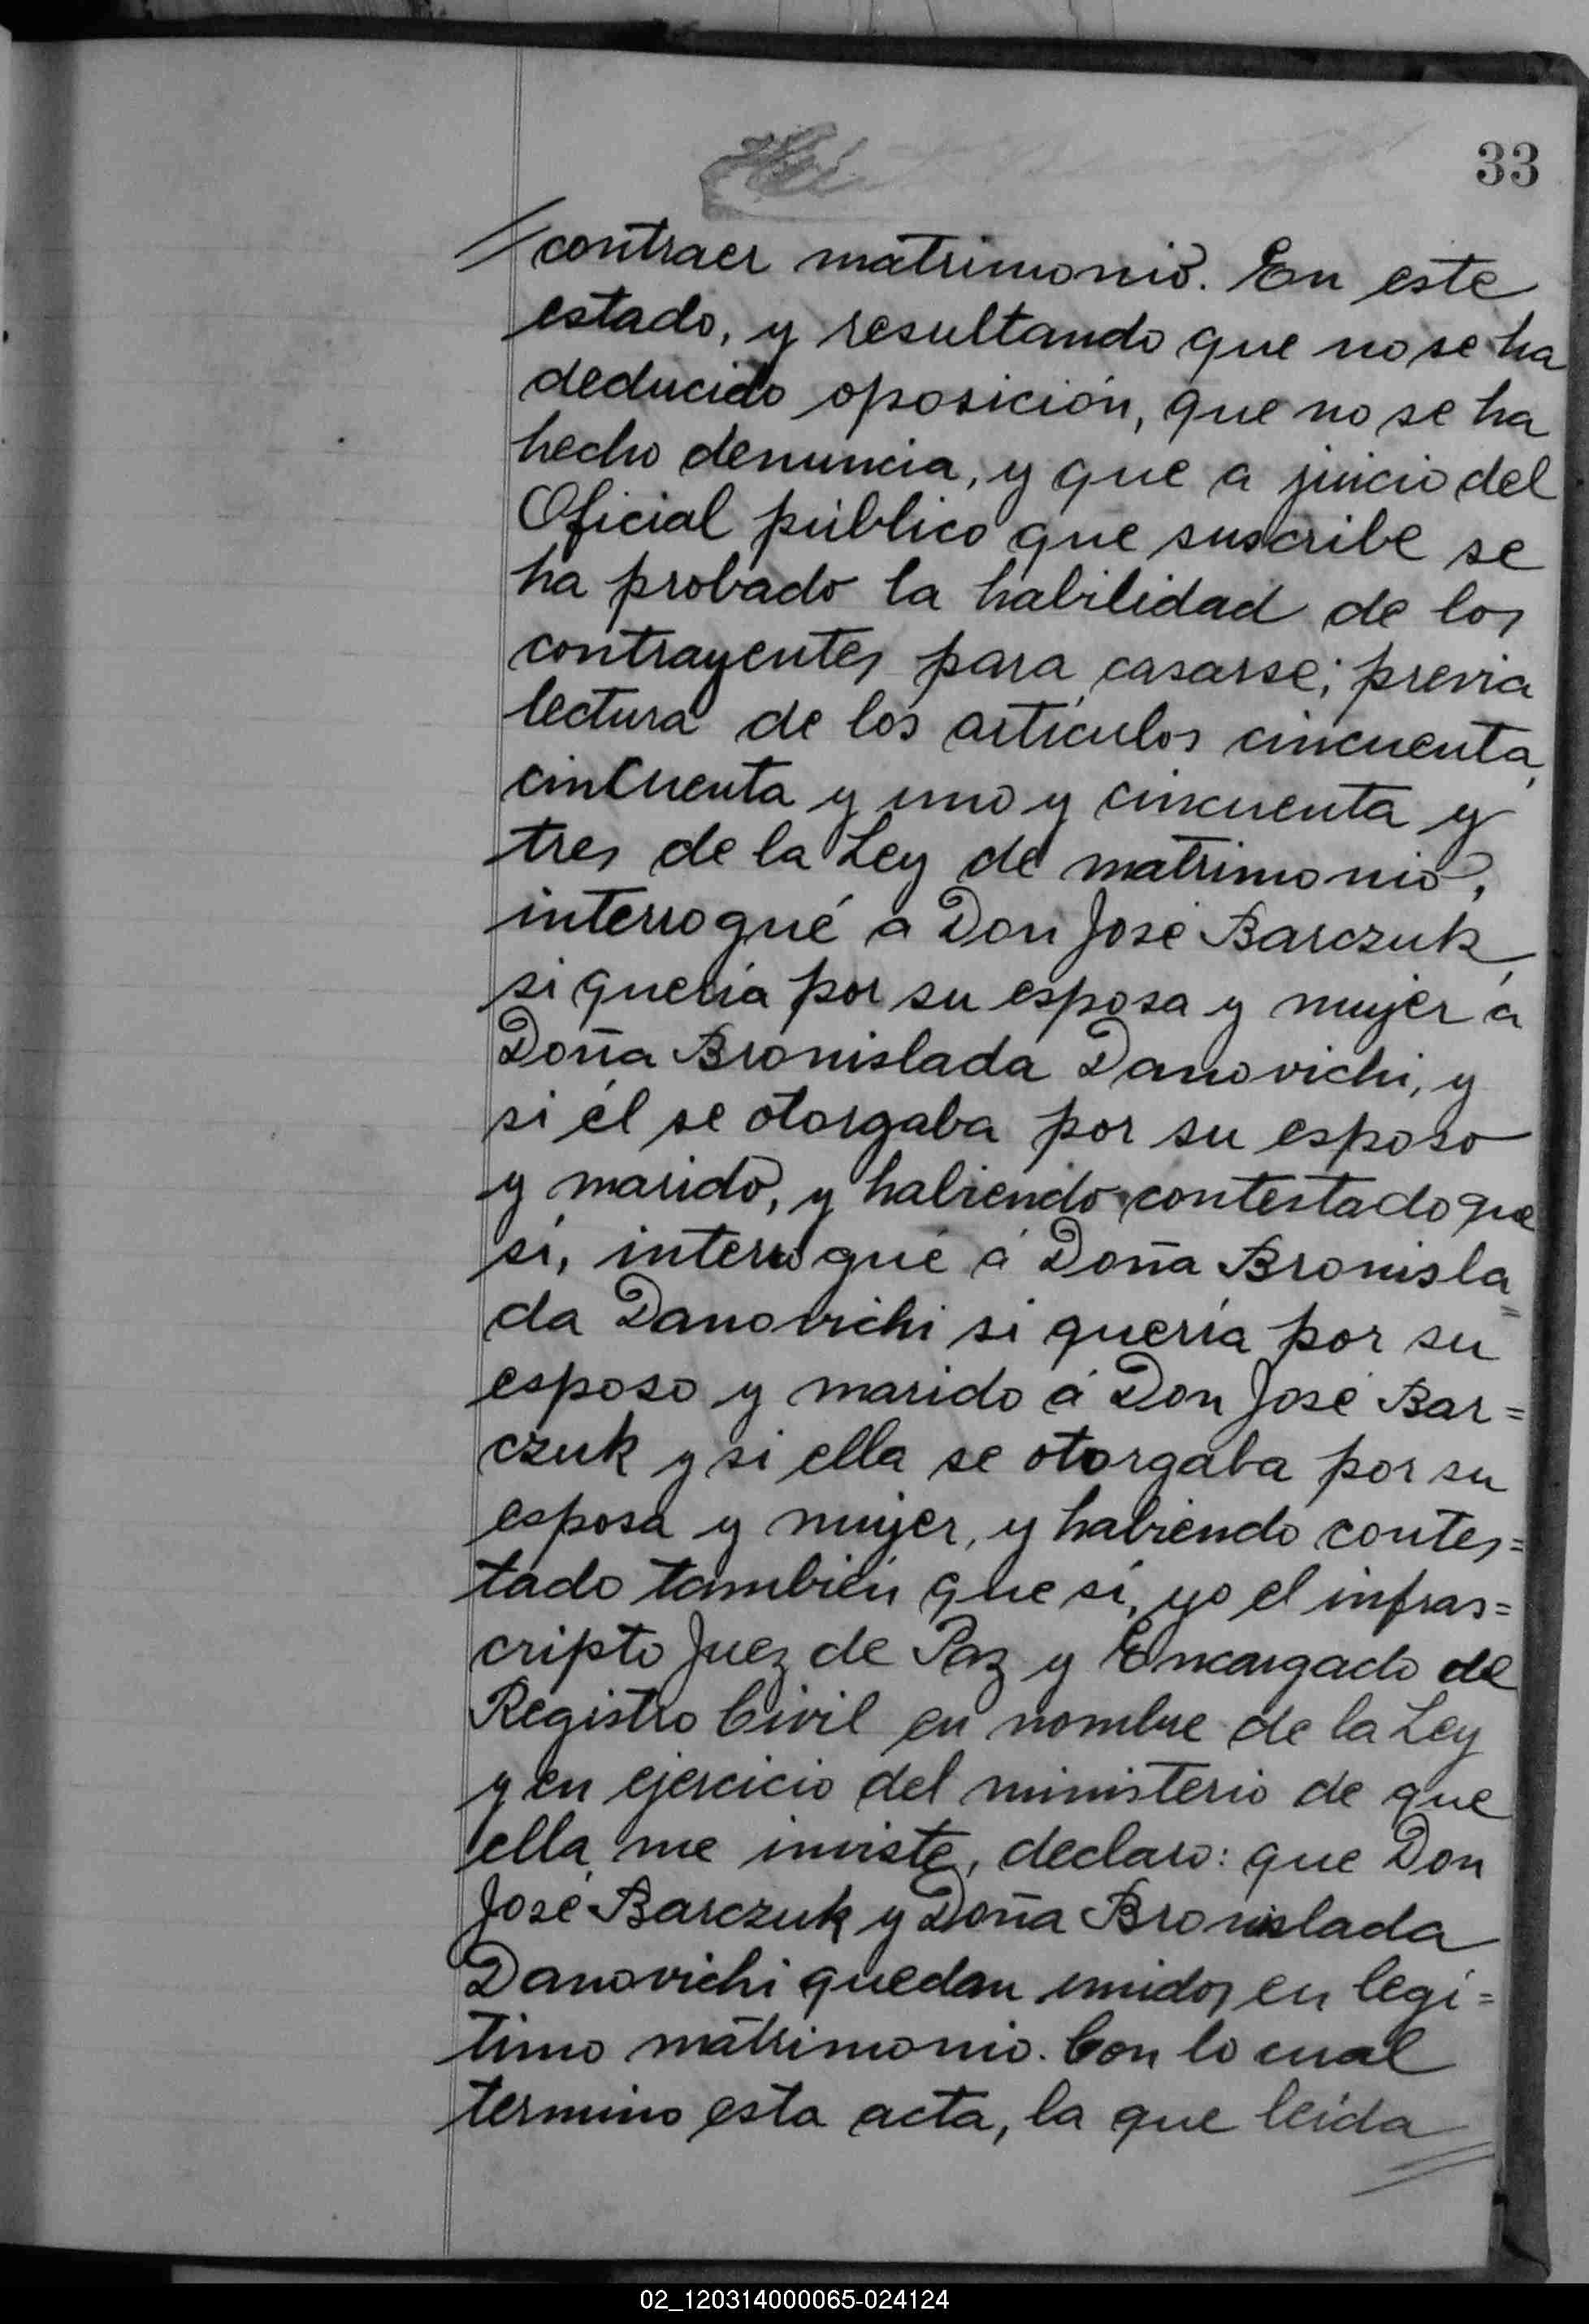 33
//contraer matrimonio. En este
estado, y resultando que no se ha
deducido oposición, que no se ha
hecho denuncia, y que a juicio del
Oficial público que suscribe se
ha probado la habilidad de los
contrayentes para casarse; previa
lectura de los artículos cincuenta,
cincuenta y uno y cincuenta y
tres de la Ley de matrimonio,
interrogué a Don José Barczuk,
si quería por su esposa y mujer á
Doña Bronislada Danovichi, y
si él se otorgaba por su esposo
y marido, y habiendo contestado que
sí, interrogué á Doña Bronisla=
da Danovichi si quería por su
esposo y marido á Don José Bar=
czuk y si ella se otorgaba por su
esposa y mujer, y habiendo contes=
tado también que sí, yo el infras=
cripto Juez de Paz y Encargado de
Registro Civil en nombre de la Ley
y en ejercicio del ministerio de que
ella me inviste, declaro: que Don
José Barczuk y Doña Bronislada
Danovichi quedan unidos en legí=
timo matrimonio. Con lo cual
termino esta acta, la que leída//
02_120314000065-024124